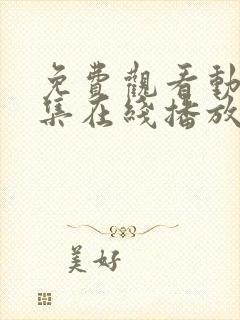 免費觀看動
集在綫播放
美好